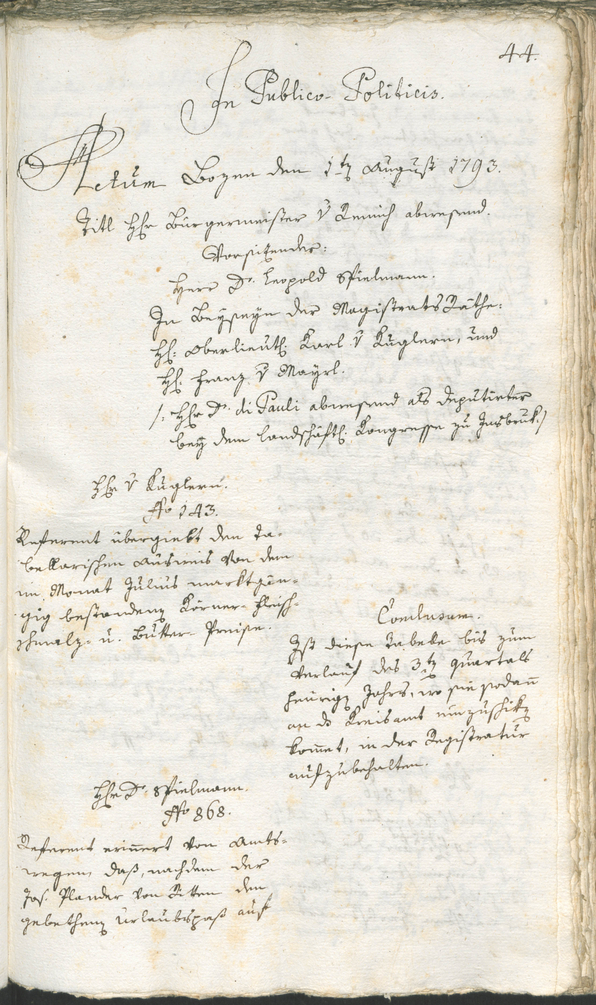 44.
In Publico-Politicis.
Actum Bozen den 1tn August 1793.
Titl Hr Bürgermeister v Remich abwesend.
Vorsitzender:
Herr Dr. Leopold Spielmann.
In Beyseyn der Magistrats Räthe:
HH. Oberlieut. Karl v Kuglern, und
HH. Franz v Mayrl.
/: Hr Dr. di Pauli abwesend als Deputirter
bey dem landschäftl. Kongresse zu Insbruk. /
Hr v Kuglern.
No 143.
Referent übergiebt den ta-
bellarischen Ausweis von den
im Monat Julius marktgän-
gig bestandenen Körner- Fleisch-
Schmalz- u. Butter- Preise.
Conclusum.
Ist diese Tabelle bis zum
Verlauf des 3tn Quartals
heurign Jahrs, wo sie sodann
an ds Kreisamt einzuschikn
kommet, in der Registratur
aufzubehalten.
Hr Dr. Spielmann.
No 868.
Referent erinnert von Amts-
wegen, daß, nachdem der
Jos. Plander von Ritten den
gebethenen Urlaubspaß auf